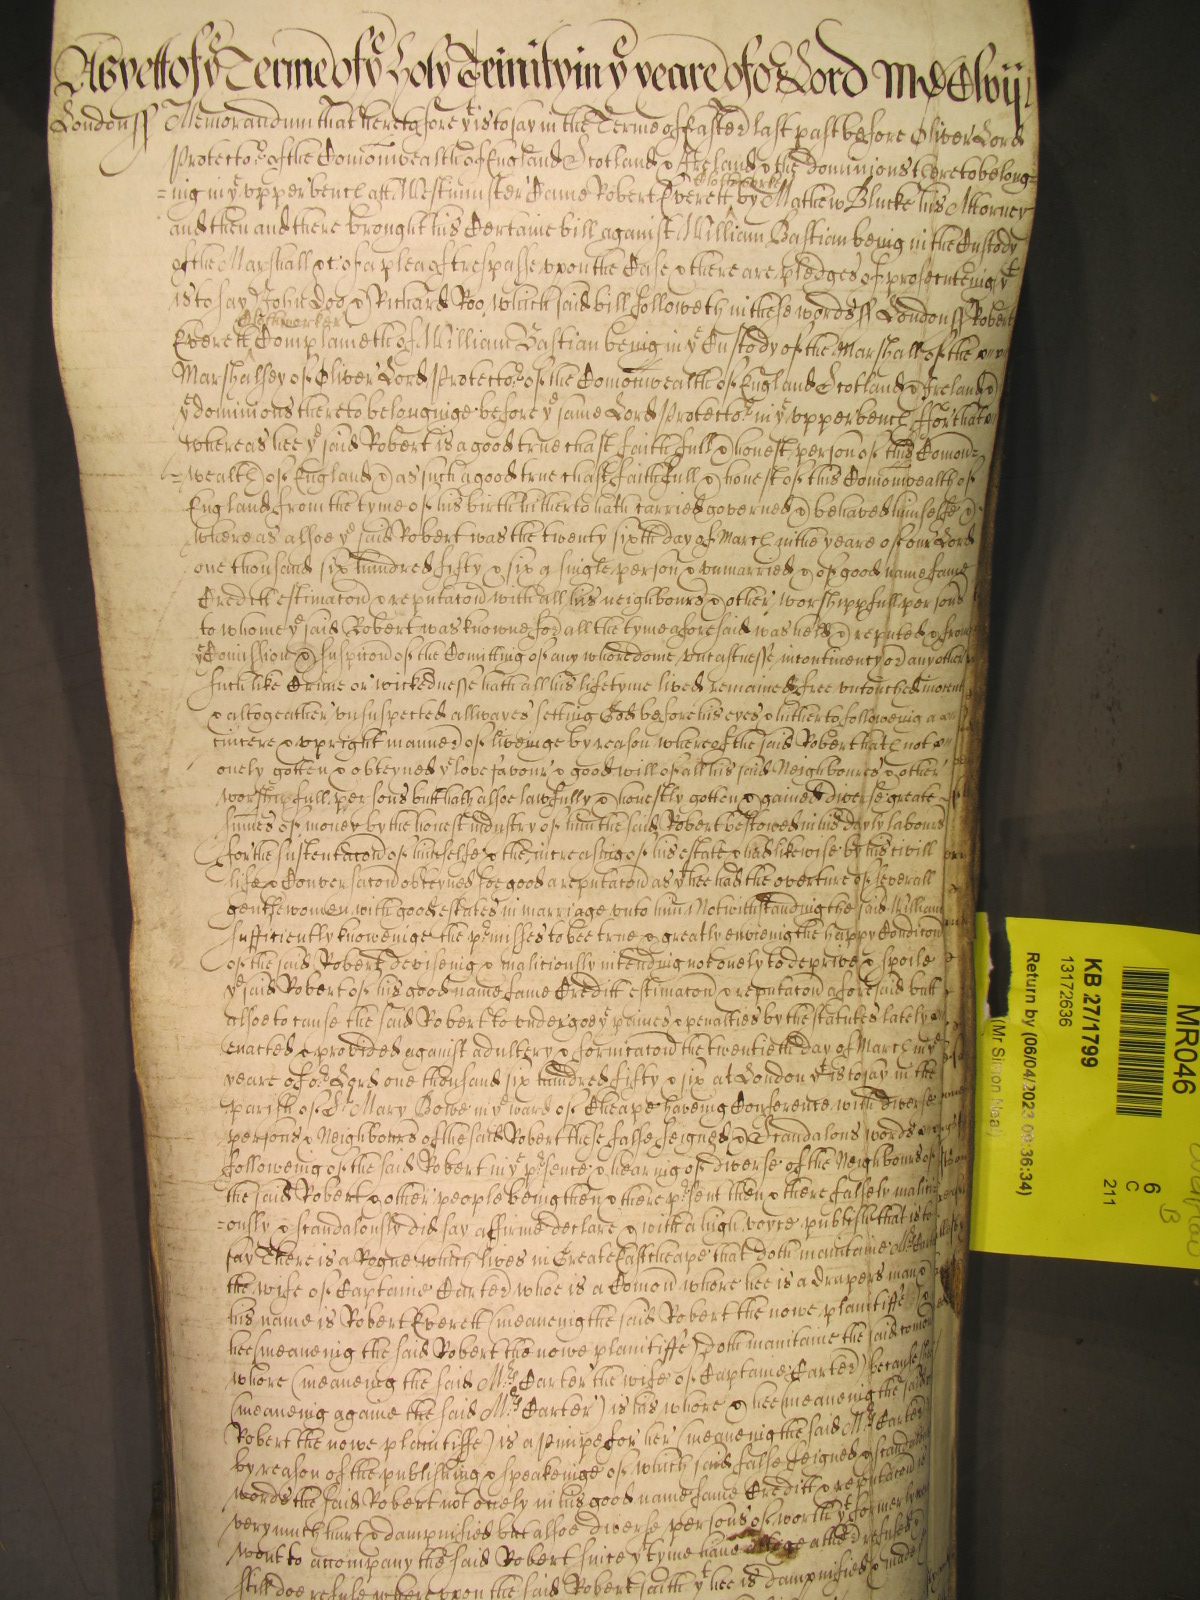 As yett of ye Terme of ye holy Trinity in ye yeare of or Lord MDClvij
London ss Memorandum that heretofore yt is to say in the Terme of Easter last past before Oliver Lord
Protector of the Comonwealth of England Scotland & Ireland & the dominions thereto belong=
=ing in ye upper bench att Westminster Came Robert Everett Clothworker by Mathew Blucke his Attorney
and then and there brought his Certaine bill against William Bastian being in the Custody
of the Marshall &c of a plea of trespasse upon the Case & there are pledges of prosecuteing yt
is to say John Doo & Richard Roo, which said bill followeth in these words ss London ss Robert
Everett Clothworker Complaineth of William Bastian being in ye Custody of the Marshall of the
Marshalsey of Oliver Lord Protector of the Comonwealth of England Scotland & Ireland &
ye dominions thereto belonginge before ye same Lord Protector in ye upper bench for that
whereas hee ye said Robert is a good true chast faithfull & honest person of this Comon=
=wealth of England & as such a good true chast faithfull & honest of this Comonwealth of
England from the tyme of his birth hitherto hath carried governed & behaved himselfe &
whereas alsoe ye said Robert was the twenty sixth day of March in the yeare of our Lord
one thousand six hundred fifty & six a single person & unmarried & of good name fame
Creditt estimacon & reputacon with all his neighbours & other worshippfull persons
to whome ye said Robert was knowne for all the tyme aforesaid was held & reputed & from
ye Comission & suspicon of the Comitting of any whoredome uncastnesse incontinency or any other
such like Crime or wickednesse hath all his lifetyme lived remained free untouched
& altogeather unsuspected allwayes setting God before his eyes & hitherto following a
sincere & upright manner of liveinge by reason whereof the said Robert hath not
onely gotten & obteyned ye love favour & good will of all his said Neighboures & other
worshipfull persons butt hath alsoe lawfully & honestly gotten & gained diverse greate
summes of money by the honest industry of him the said Robert bestowed in his dayly labours
for the sustentacon of himselfe & the increasing of his estate & had likewise by his civill
life & Conversacon obteyned soe good a reputacon as yt hee had the overture of severall
gentlewomen with good estates in marriage unto him Notwithstanding the said William
sufficiently knoweinge the premisses to bee true & greatly envieing the happy Condicon
of the said Robert deviseing & maliciously intending not onely to deprive & spoile
ye said Robert of his good name fame Creditt estimacon & reputacon aforesaid butt
alsoe to cause the said Robert to undergoe ye paines & penalties by the statutes lately
enacted & provided against adultery & fornicacon the twentieth day of March in ye
yeare of or Lord one thousand six hundred fifty & six at London yt is to say in the
parish of St Mary Bowe in ye ward of Cheape haveing Conference with diverse
persons & Neighbours of the said Robert these false feigned & Scandalous words
following of the said Robert in ye presence & hearing of diverse of the Neighbours of
the said Robert & other people being then & there present then & there falsely malici
=ously & scandalously did say affirme declare & with a high voyce publish that is to
say There is a Rogue which lives in Greate Eastcheape that doth maintaine
the wife of Captaine Carter whoe is a Comon whore hee is a drapers man &
his name is Robert Everett (meaneing the said Robert the nowe plaintiffe) &
hee (meaneing the said Robert the nowe plaintiffe) doth maintaine the said
whore (meaneing the said Mrs Carter the wife of Captaine Carter) because shee
(meaneing againe the said Mrs Carter) is his whore & hee (meaneing the said
Robert the nowe plaintiffe) is a pimpe for her (meaneing the said Mrs Carter)
by reason of the publishing & speakeinge of which said false feigned & scandalous
words the said Robert not onely in his good name fame Creditt & reputacon is
very much hurt & dampnified but alsoe diverse persons of worth yt formerly
wont to accompany the said Robert since yt tyme have altogeather refused &
still doe refuse whereupon the said Robert saith yt hee is dampnified & made
MR046
6
C
211
KB 27/1799
13172636
Return by (06/04/2023 09:36:34)
(Mr Simon Neal)